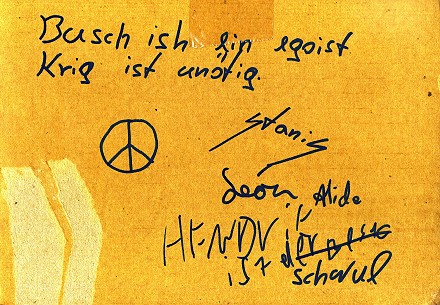 Busch ish ein egoist
Krig ist unötig.
Stanis
Leon, Alide
HENDRik
ist der
schwul